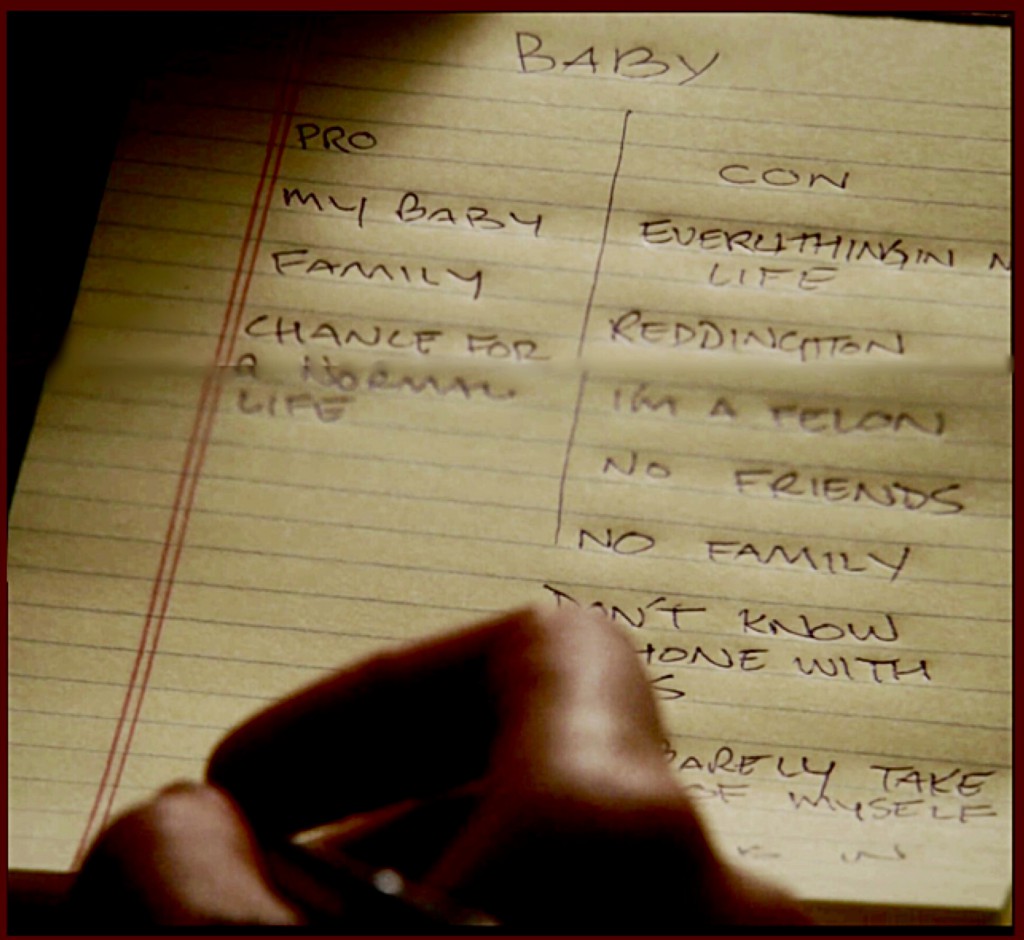 BABY
PRO
MY BABY
FAMILY
CHANCE FOR
A NORMAL
LIFE
CON
EVERYTHING IN
LIFE
REDDINGTON
I'M A FELON
NO FRIENDS
NO FAMILY
DON'T KNOW
WITH
BARELY TAKE
OF MYSELF
IN